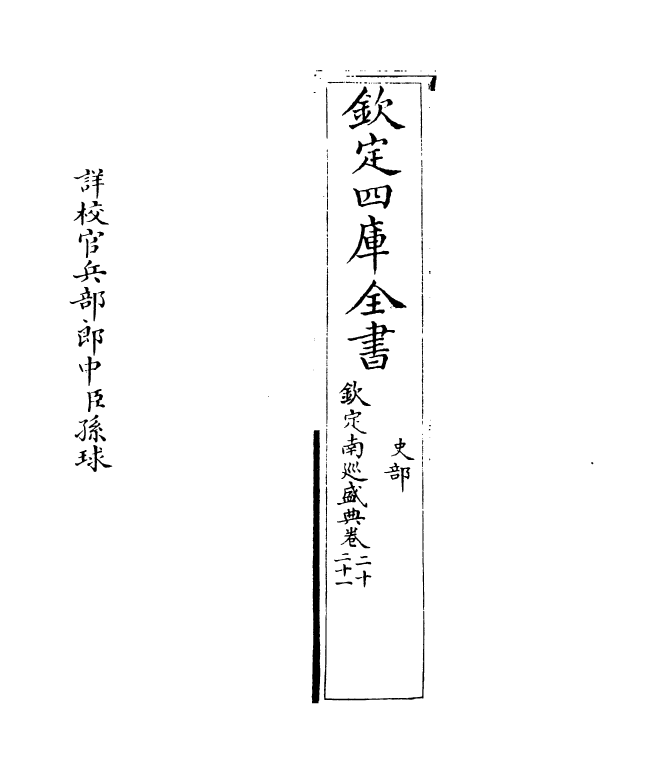 欽定四庫全書
史部
欽定南巡盛典卷二十
二十一
詳校官兵部郎中臣孫球